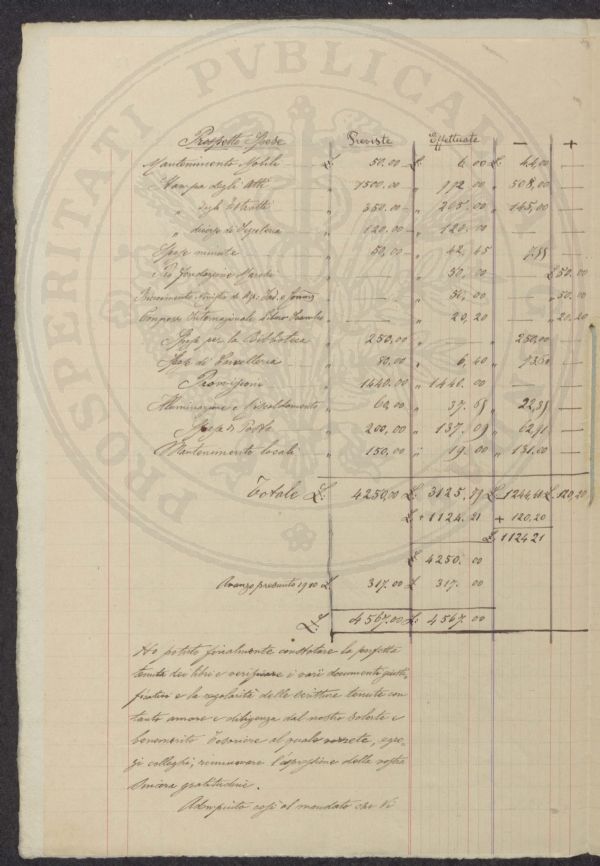 PROSPERITATI PVBLICAE
Prospetto Spese Previste Effettuate — +
Mantenimento Mobili £. 50.00 £. 6.00 £. 44.00 —
Stampa degli Atti „ 1500.00 „ 992.00 „ 508.00 —
„ degli Estratti „ 350.00 „ 205.00 „ 145.00 —
„ diverse di Segreteria „ 120.00 „ 120.00 — —
Spese minute „ 50.00 „ 42.45 7.55 —
Pro fondazione — „ 50.00 — £ 50.00
— „ 50.00 — „ 50.00
Congresso Internazionale — „ 20,20 — „ 20.20
Spese per la Biblioteca „ 250.00 „ — „ 250.00 —
Spese di Cancelleria „ 80.00 „ 6,40 „ 73.60 —
Provvigioni „ 1440.00 „ 1440.00 — —
Illuminazione e Riscaldamento „ 60,00 „ 37.65 „ 22,35 —
Spese di Posta „ 200,00 „ 137.09 „ 62,91 —
Mantenimento locali „ 150.00 „ 19.00 „ 131.00 —
Totale £. 4250,00 £. 3125,79 £. 1244,41 £. 120,20
£. + 1124.21 + 120,20
£. 1124 21
£. 4250.00
Avanzo presunto 1910 £. 317.00 £ 317.00
4567.00 £. 4567.00
Ho potuto finalmente constatare la perfetta
tenuta dei libri e verificare i varii documenti giusti-
ficativi e la regolarità delle scritture tenute con
tanto amore e diligenza dal nostro solerte e
benemerito Tesoriere al quale vorrete, egre-
gi colleghi, rinnovare l'espressione della nostra
sincera gratitudine.
Adempiuto così al mandato che Vi